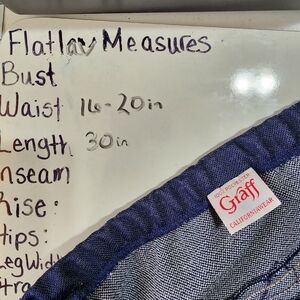 Flatlay Measures
Bust
Waist 16-20in
Length 30in
nseam
Rise:
Hips:
Leg Widt
100% POLYESTER
Graff
CALIFORNIAWEAR